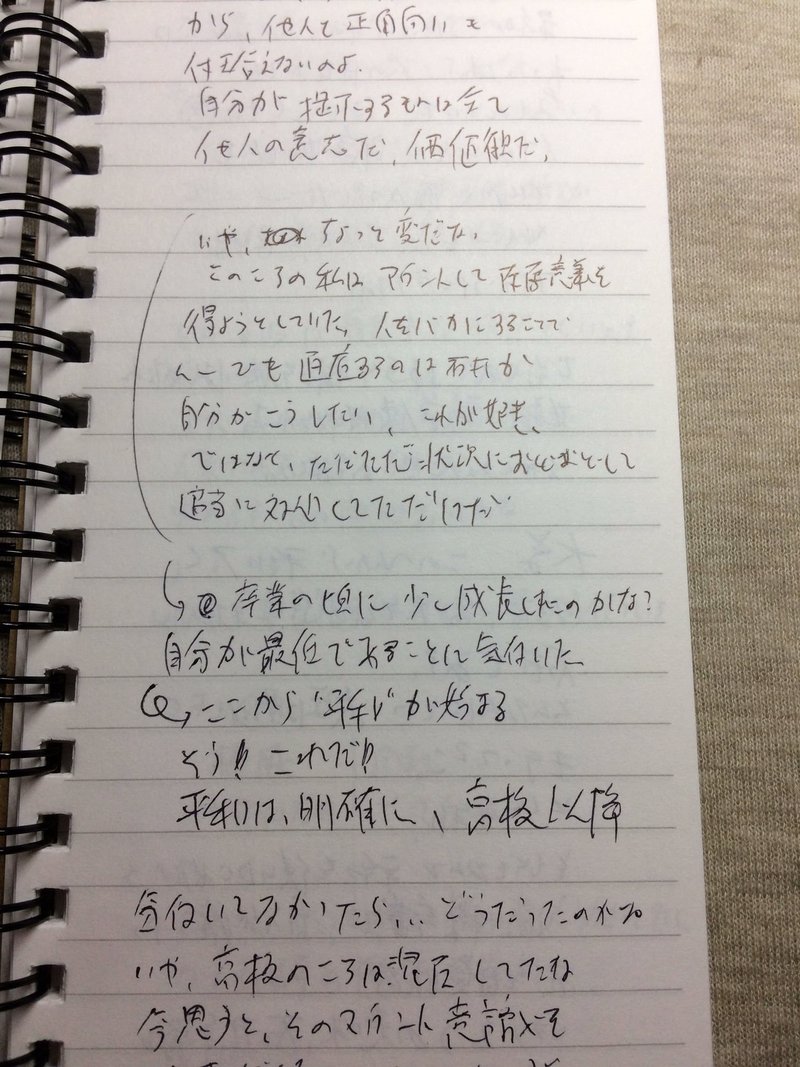 から、他人と正面向いて
何も言えないのよ.
自分が提示するものは全て
他人の意志だ、価値観だ、
いや、もっと変だな、
このころの私はマウントして存在意義を
得ようとしていた、人をバカにすることで
自分がこうしたい、これが好き、
ではなくて、ただただ状況におどおどして
適当に対処してただけだ
卒業の頃に少し成長したのかな?
自分が最低であることに気付いた
ここから"平和"が始まる
そう!! これだ!!
平和は、明確に、高校以降
気付いてなかったら… どうだったのかな
いや、高校のころは混在してたな
今思うと、そのマウント意識を